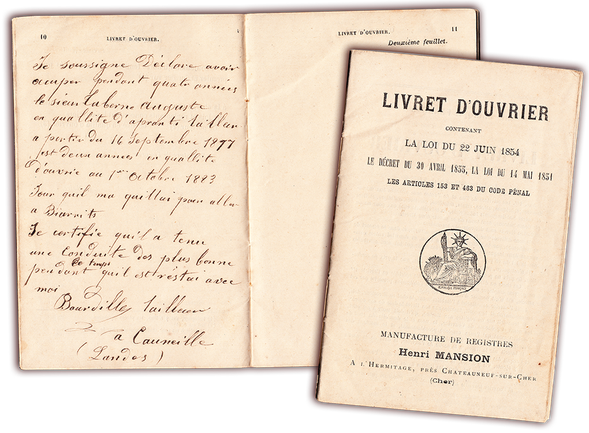 10
LIVRET D'OUVRIER.
Je soussigne Déclare avoir
ocuper pendant quatre années
le sieur Laborne Auguste
en quallite d'aprenti tailleur
a partir du 16 Septembre 1877
et deux annees en quallite
d'ouvrie au 1er Octobre 1883
Jour quil ma quittui pour aller
a Biarrits
Je certifie qu'il a tenu
une Conduite des plus bonne
pendant le temps quil est réstai avec
moi
Bourdilles tailleur
a Cauneille
(Landes)
LIVRET D'OUVRIER.
11
Deuxième feuillet.
LIVRET D'OUVRIER
CONTENANT
LA LOI DU 22 JUIN 1854
LE DÉCRET DU 30 AVRIL 1855, LA LOI DU 14 MAI 1851
LES ARTICLES 153 ET 463 DU CODE PÉNAL
MANUFACTURE DE REGISTRES
Henri MANSION
A L'HERMITAGE, PRÈS CHATEAUNEUF-SUR-CHER
(Cher)